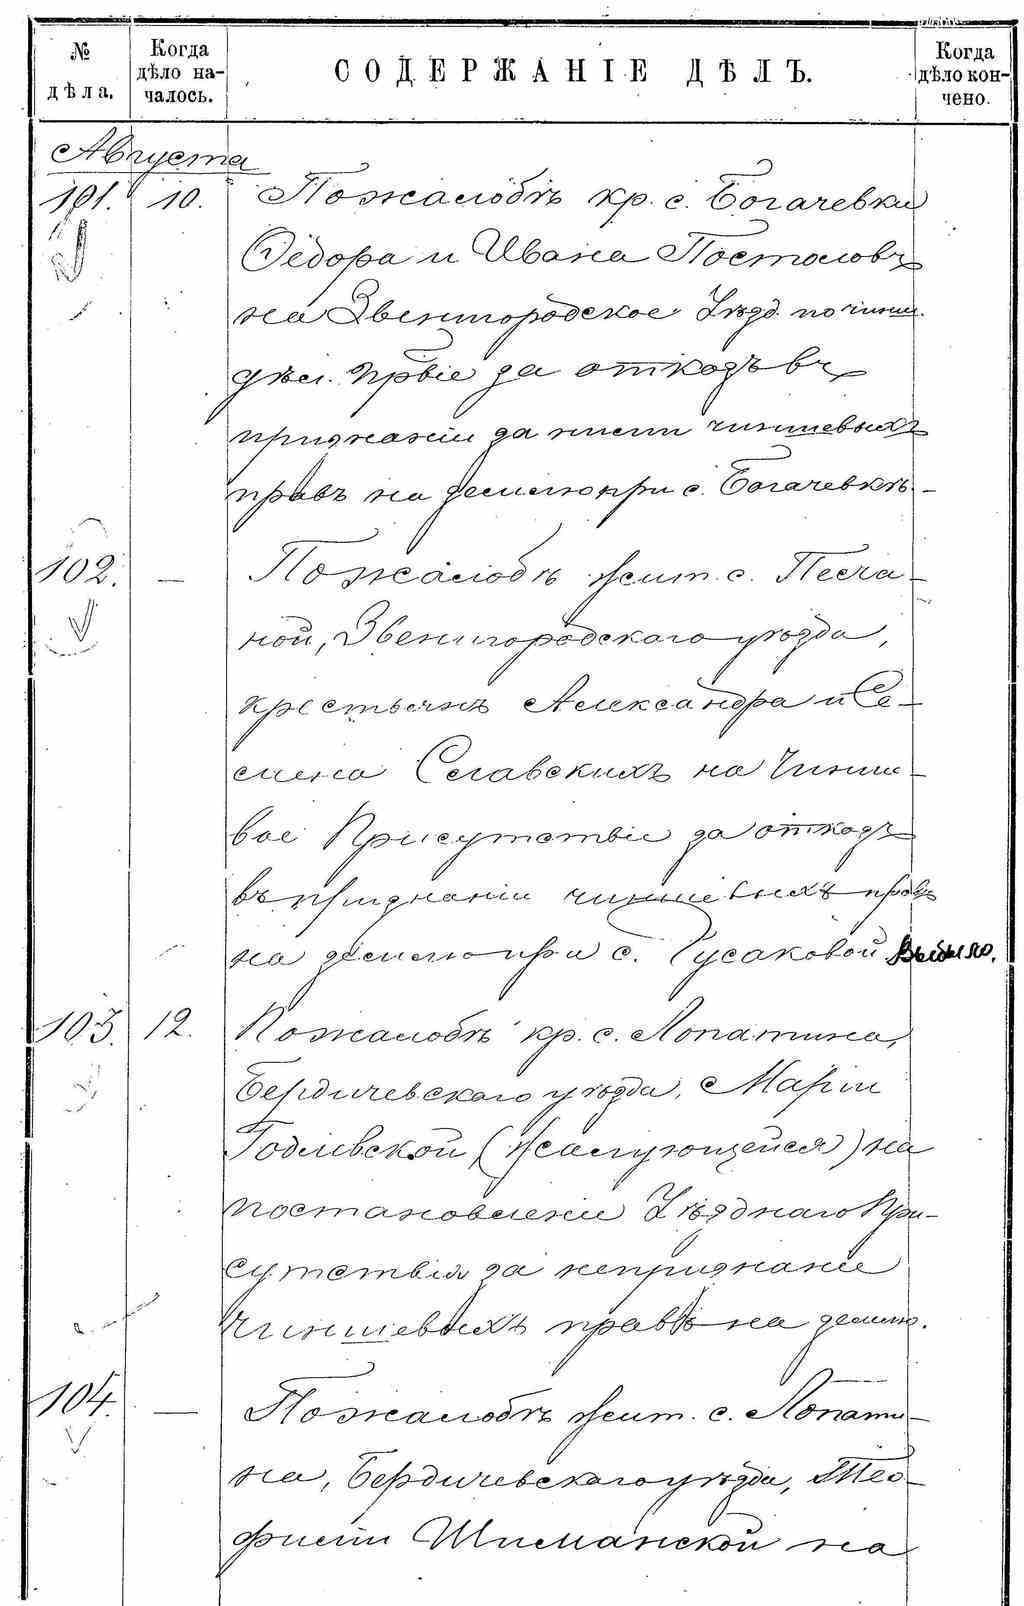 № дѣла.
Когда дѣло началось.
СОДЕРЖАНІЕ ДѢЛЪ.
Когда дѣло кончено.
Августа
101. 10. По жалобѣ кр. с. Богачевки
Ѳедора и Ивана Постоловъ
на Звенигородское Уѣзд. по чинш.
дѣл. Пр͠віе за отказъ въ
признаніи за ними чиншевыхъ
правъ на землю при с. Богачевкѣ.
102. — По жалобѣ жит. с. Песча-
ной, Звенигородскаго уѣзда,
крестьянъ Александра и Се-
мена Славскихъ на Чинше-
вое Присутствіе за отказъ
въ признаніи чиншевыхъ правъ
на землю при с. Гусаковой. Выбыло.
103. 12. По жалобѣ кр. с. Лопатина,
Бердичевскаго уѣзда, Маріи
Годлевской (жалующейся) на
постановленіе Уѣзднаго При-
сутствія за непризнаніе
чиншевыхъ правъ на землю.
104. — По жалобѣ жит. с. Лопати-
на, Бердичевскаго уѣзда, Тео-
филіи Шиманской на